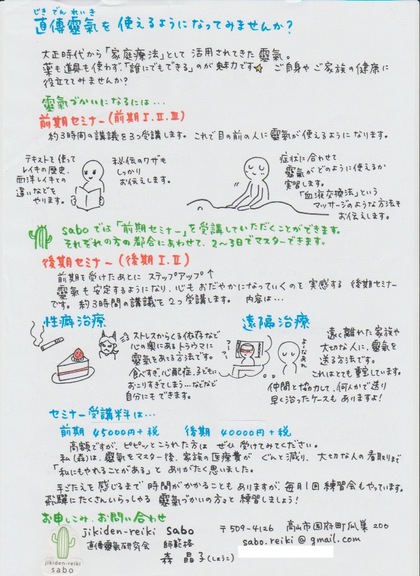 じき でん れい き
直傳靈氣を使えるようになってみませんか?
大正時代から「家庭療法」として活用されてきた靈氣。
薬も道具も使わず、"誰にもできる"のが魅力です☆ ご自身やご家族の健康に
役立ててみませんか?
靈氣づかいになるには…
前期セミナー(前期Ⅰ.Ⅱ.Ⅲ)
約3時間の講議を3つ受講します。これで目の前の人に靈氣が使えるようになります。
テキストを使って
レイキの歴史、
西洋レイキとの
違いなどを
やります。
秘伝のワザも
しっかり
お伝えします。
症状に合わせて
靈氣がどのように使えるか
実習します。
「血液交換法」という
マッサージのような方法も
お伝えします。
saboでは「前期セミナー」を受講していただくことができます。
それぞれの方の都合にあわせて、2~3日でマスターできます。
後期セミナー(後期Ⅰ.Ⅱ)
前期を受けたあとに ステップアップ↑
靈氣も安定するようになり、心もおだやかになっていくのを実感する 後期セミナー
です。約3時間の講議を2つ受講します。 内容は…
性癖治療
ストレスからくる依存など
心の奥にあるトラウマに
靈氣をあてる方法です。
食べすぎ、心配症、子どもに
おこりすぎてしまう…などなど
自分にもできます。
遠隔治療
遠く離れた家族や
大切な人に、靈氣を
送る方法です。
これはとても重宝しています。
仲間と協力して、何人かで送り
早く治ったケースもありますよ!
セミナー受講料は…
前期 45000円+税 後期 40000円+税
高額ですが、ピピッとこられた方は ぜひ受けてみてください。
私(森)は、靈氣をマスター後、家族の医療費が ぐんと減り、大切な人の看取りまで
「私にもやれることがある」と ありがたく思いました。
手ごたえを感じるまで 時間がかかることもありますが、毎月1回練習会もやっています。
飛騨にたくさんいらっしゃる 靈氣づかいの方々と 練習しましょう!
お申しこみ、お問い合わせ
jikiden-reiki sabo
直傳靈氣研究会 師範格
森 晶子(しょうこ)
〒509-4126 高山市国府町瓜巣200
sabo.reiki@gmail.com
jikiden-reiki
sabo